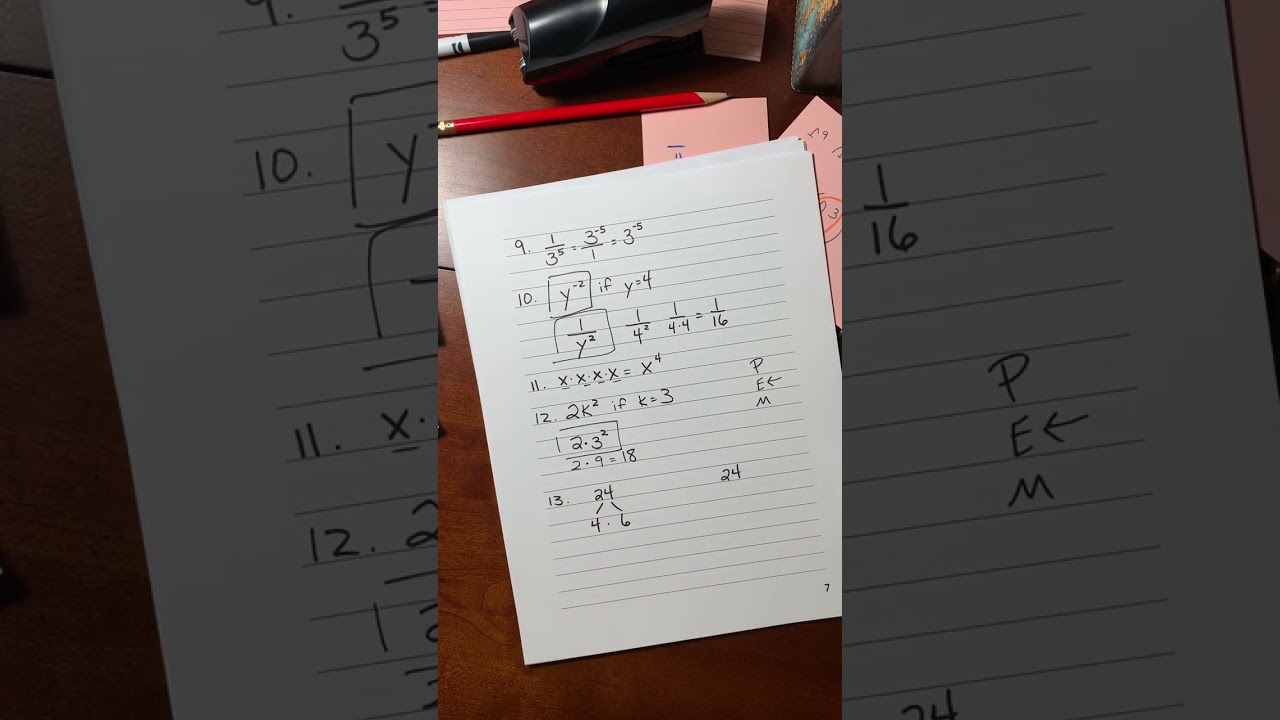 9. 1/3⁵ = 3⁻⁵/1 = 3⁻⁵
10. y⁻² if y=4
1/y² 1/4² 1/4·4 = 1/16
11. x·x·x·x = x⁴
P
E←
12. 2k² if k=3
M
2·3²
2·9=18
13. 24
24
4·6
7